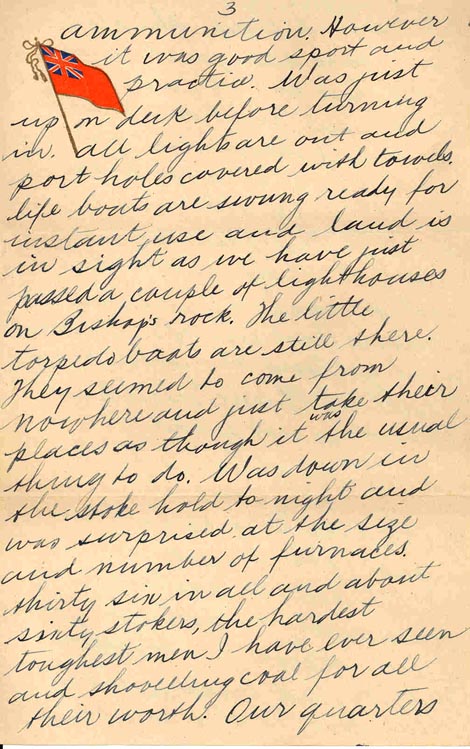 3
ammunition. However
it was good sport and
practice. Was just
up on deck before turning
in. All lights are out and
port holes covered with towels.
life boats are swung ready for
instant use and land is
in sight as we have just
passed a couple of lighthouses
on Bishop's rock. The little
torpedo boats are still there.
They seemed to come from
nowhere and just take their
places as though it was the usual
thing to do. Was down in
the stoke hold to night and
was surprised at the size
and number of furnaces.
thirty six in all and about
sixty stokers, the hardest
toughest men I have ever seen
and shovelling coal for all
their worth. Our quarters